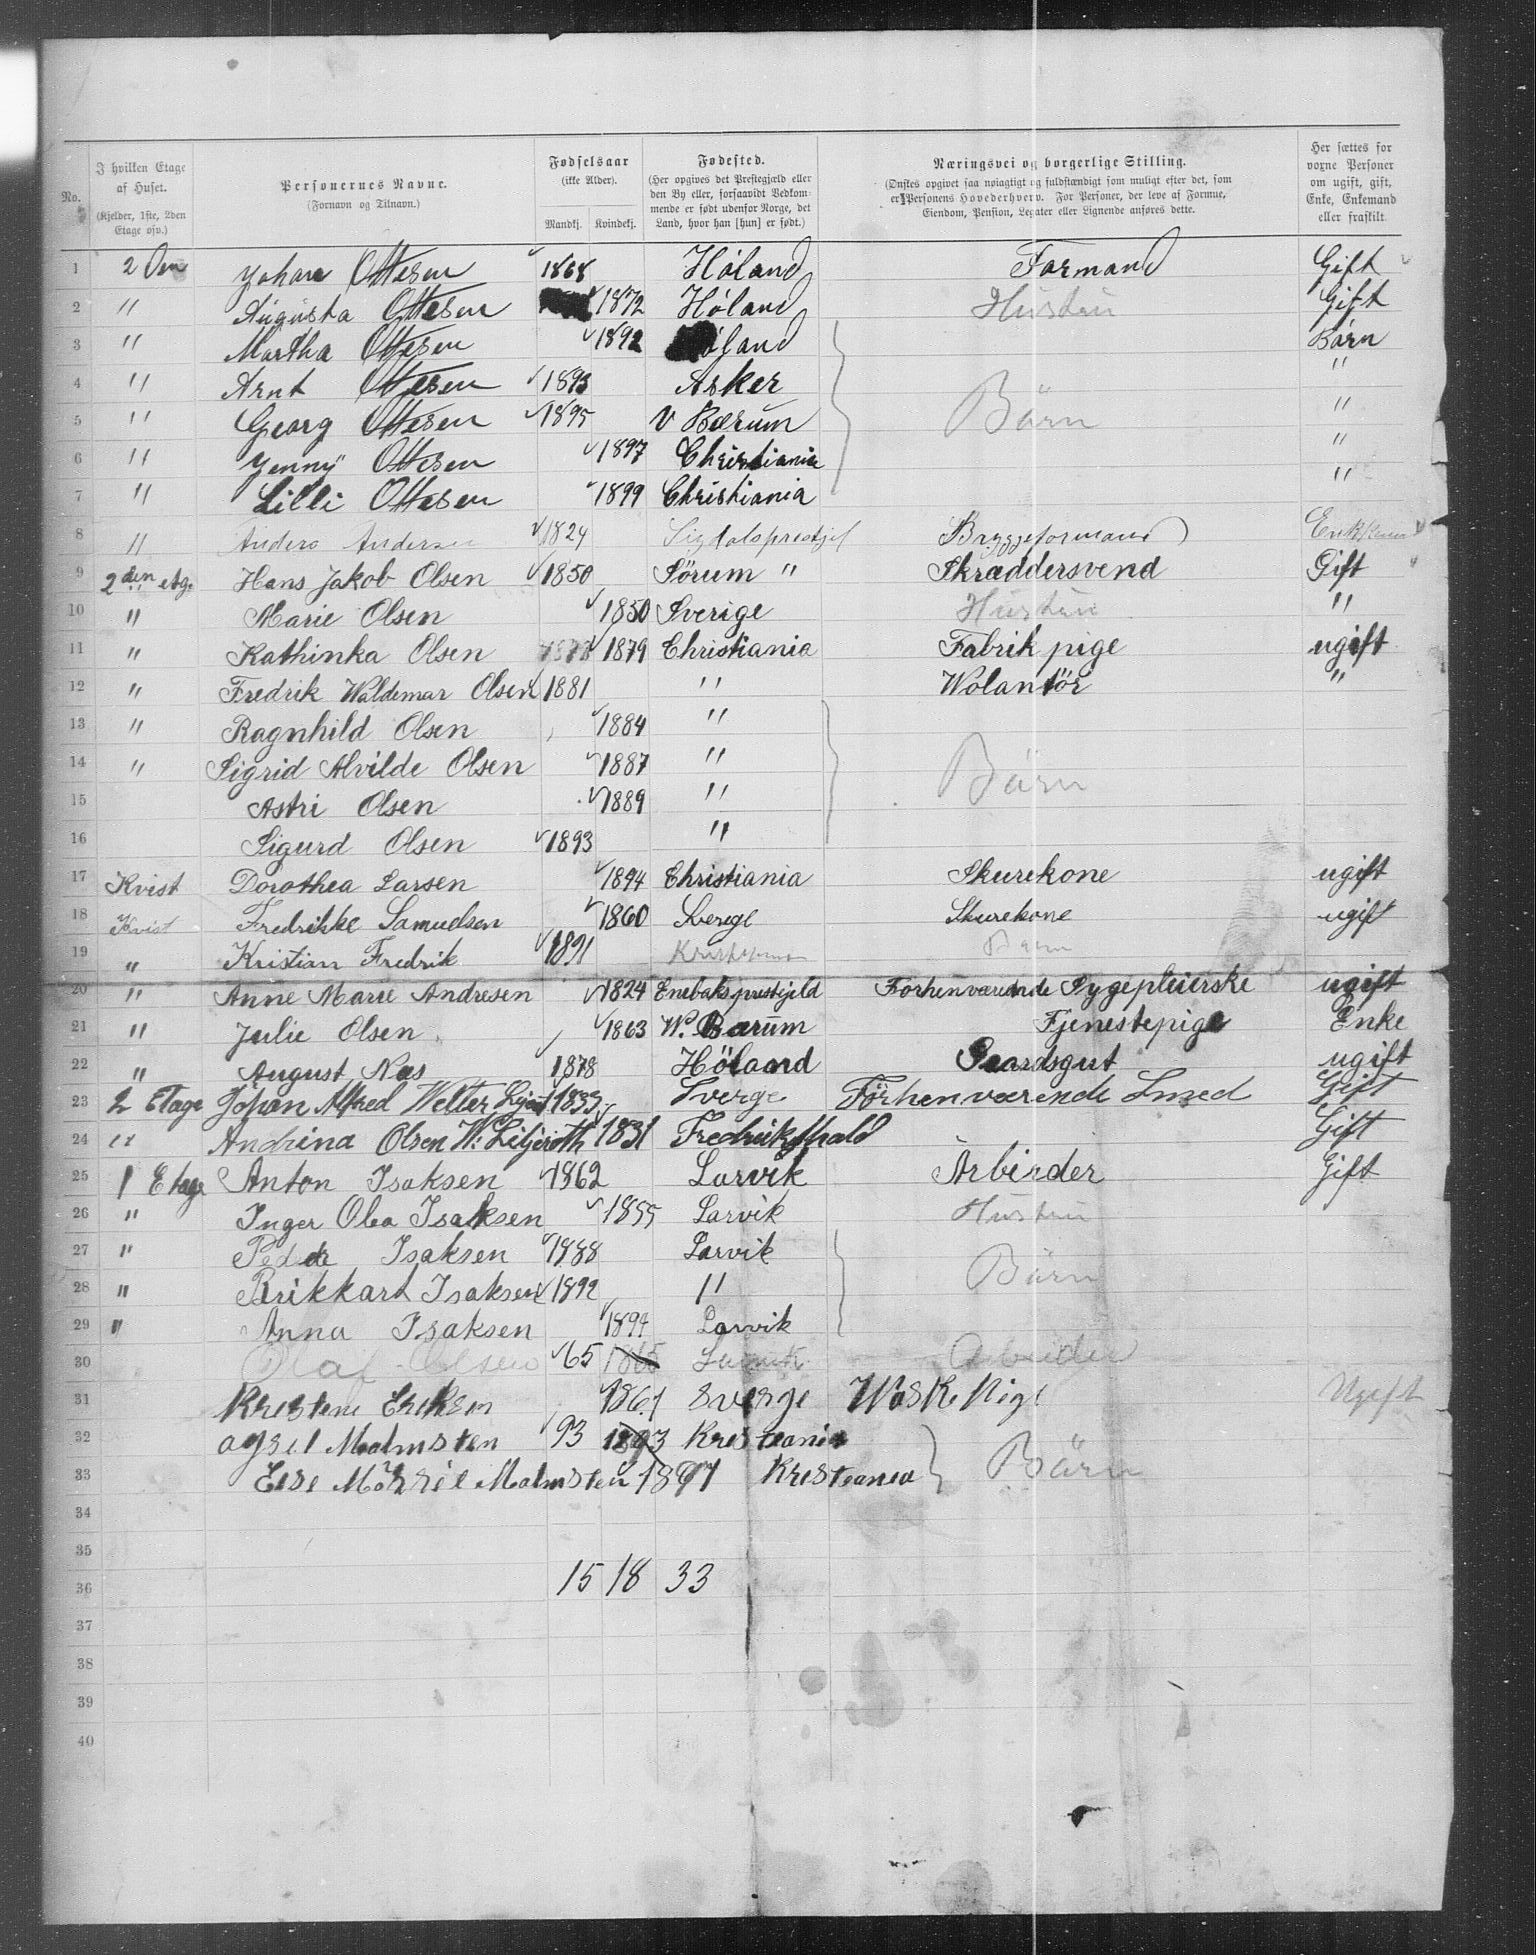 No. | I hvilken Etage af Huset. (Kjelder, 1ste, 2den Etage osv.) | Personernes Navne. (Fornavn og Tilnavn.) | Fødselsaar (ikke Alder). Mandkj. Kvindekj. | Fødested. (Her opgives det Prestegjæld eller den By eller, forsaavidt Vedkommende er født udenfor Norge, det Land, hvor han [hun] er født.) | Næringsvei og borgerlige Stilling. (Ønskes opgivet saa nøiagtigt og fuldstændigt som muligt efter det, som er Personens Hovederhverv. For Personer, der leve af Formue, Eiendom, Pension, Legater eller Lignende anføres dette. | Her sættes for voxne Personer om ugift, gift, Enke, Enkemand eller fraskilt.
1 2 Den Johan Ottesen 1868 Høland Formand Gift
2 " Augusta Ottesen 1872 Høland Hustru Gift
3 " Martha Ottesen 1892 Høland Børn
4 " Arnt Ottesen 1893 Asker "
5 " Georg Ottesen 1895 V Bærum Børn "
6 " Jenny Ottesen 1897 Christiania "
7 " Lilli Ottesen 1899 Christiania "
8 " Anders Andersen 1824 Sigdalsprestgjel Bryggeformand
9 2den etg. Hans Jakob Olsen 1850 Sørum " Skræddersvend Gift
10 " Marie Olsen 1850 Sverige Hustru "
11 " Kathinka Olsen 1879 Christiania Fabrik pige ugift
12 " Fredrik Waldemar Olsen 1881 " Wolantör "
13 " Ragnhild Olsen 1884 "
14 " Sigrid Alvilde Olsen 1887 " Børn
15 Astri Olsen 1889 "
16 Sigurd Olsen 1893 "
17 Kvist Dorothea Larsen 1894 Christiania Skurekone ugift
18 Kvist Fredrikke Samuelsen 1860 Sverige Skurekone ugift
19 " Kristian Fredrik 1891 Barn
20 " Anne Marie Andresen 1824 Enebaks prestejeld Forhenværende Sygepleierske ugift
21 " Julie Olsen 1863 W. Bærum Tjenestepige Enke
22 " August Næs 1878 Höland Gaardsgut ugift
23 2 Etage Johan Alfred Welter 1833 Sverge Förhenværende Smed Gift
24 " Andrina Olsen W. Liljeroth 1831 Fredrikshald Gift
25 1 Etage Anton Isaksen 1862 Larvik Arbinder Gift
26 " Inger Olea Isaksen 1855 Larvik Hustru
27 " Peder Isaksen 1888 Larvik
28 " Rikkart Isaksen 1892 " Børn
29 " Anna Isaksen 1894 Larvik
30 Olaf Olsen 65 1865 Larvik Arbeider
31 Kristene Eriksen 1861 Sverge Waske Pige Ugift
32 Malmsten 93 1893 Kristiania
33 Else Malmsten 1897 Kristiania Børn
34
35
36 15 18 33
37
38
39
40